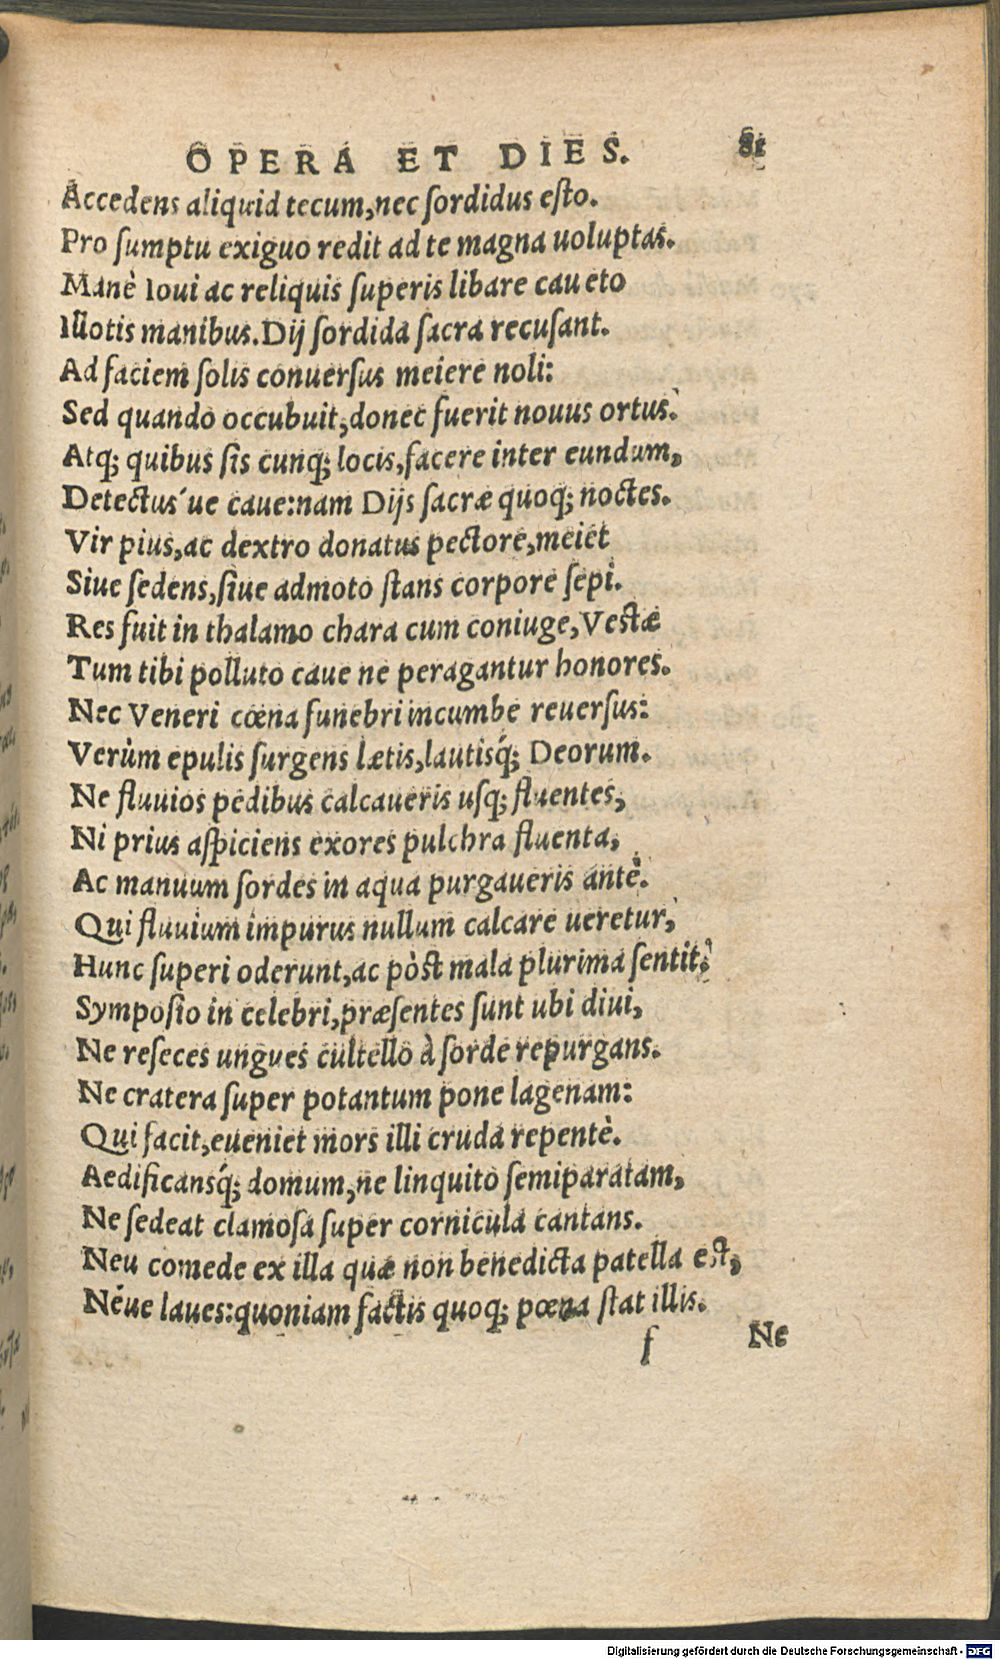 OPERA ET DIES. 81
Accedens aliquid tecum, nec ſordidus eſto.
Pro ſumptu exiguo redit ad te magna uoluptas.
Manè Ioui ac reliquis ſuperis libare caueto
Illotis manibus. Dij ſordida ſacra recuſant.
Ad faciem ſolis conuerſus meiere noli:
Sed quando occubuit, donec fuerit nouus ortus:
Atq; quibus ſis cunq; locis, facere inter eundum,
Detectus´ue caue: nam Dijs ſacræ quoq; noctes.
Vir pius, ac dextro donatus pectore, meiet
Siue ſedens, ſiue admoto ſtans corpore ſepi.
Res fuit in thalamo chara cum coniuge, Veſtæ
Tum tibi polluto caue ne peragantur honores.
Nec Veneri cœna funebri incumbe reuerſus:
Verùm epulis ſurgens lætis, lautisq́; Deorum.
Ne fluuios pedibus calcaueris uſq; fluentes,
Ni prius aſpiciens exores pulchra fluenta,
Ac manuum ſordes in aqua purgaueris antè.
Qui fluuium impurus nullum calcare ueretur,
Hunc ſuperi oderunt, ac pòſt mala plurima ſentit.
Sympoſio in celebri, præſentes ſunt ubi diui,
Ne reſeces ungues cultello à ſorde repurgans.
Ne cratera ſuper potantum pone lagenam:
Qui facit, eueniet mors illi cruda repentè.
Aedificansq́; domum, ne linquito ſemiparatam,
Ne ſedeat clamoſa ſuper cornicula cantans.
Neu comede ex illa quæ non benedicta patella eſt,
Néue laues: quoniam factis quoq; pœna ſtat illis.
f Ne
Digitalisierung gefördert durch die Deutsche Forschungsgemeinschaft - DFG